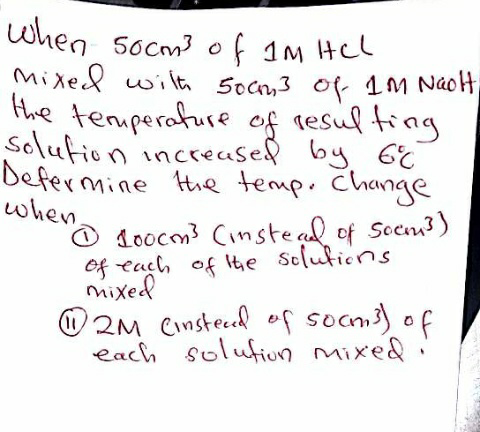 When 50cm³ of 1M HCl
mixed with 50cm³ of 1M NaoH
the temperature of resulting
solution increased by 6°C
Determine the temp. change
when
① 100cm³ (instead of 50cm³)
of each of the solutions
mixed
⑪ 2M (instead of 50cm³) of
each solution mixed.